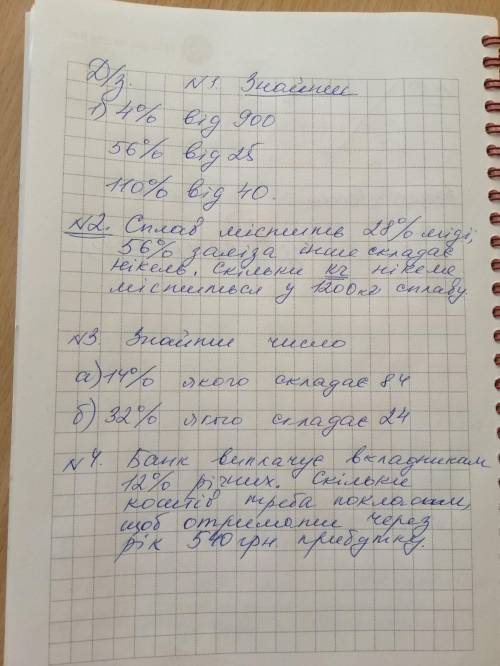 Д/з. N1. Знайти
1) 4% від 900
56% від 25
110% від 40.
N2. Сплав містить 28% міді,
56% заліза інше складає
нікель. Скільки кг нікелю
міститься у 1200 кг сплаву.
N3. Знайти число
а) 14% якого складає 84
б) 32% якого складає 24
N4. Банк виплачує вкладникам
12% річних. Скільки
коштів треба покласти,
щоб отримати через
рік 540 грн. прибутку.